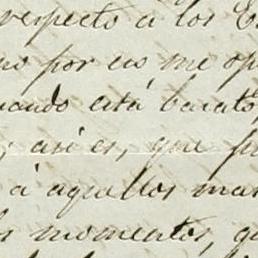 respecto á los
no por eso me op
uando está barato
, así es, que p
á aquellos mar
s momentos, qu